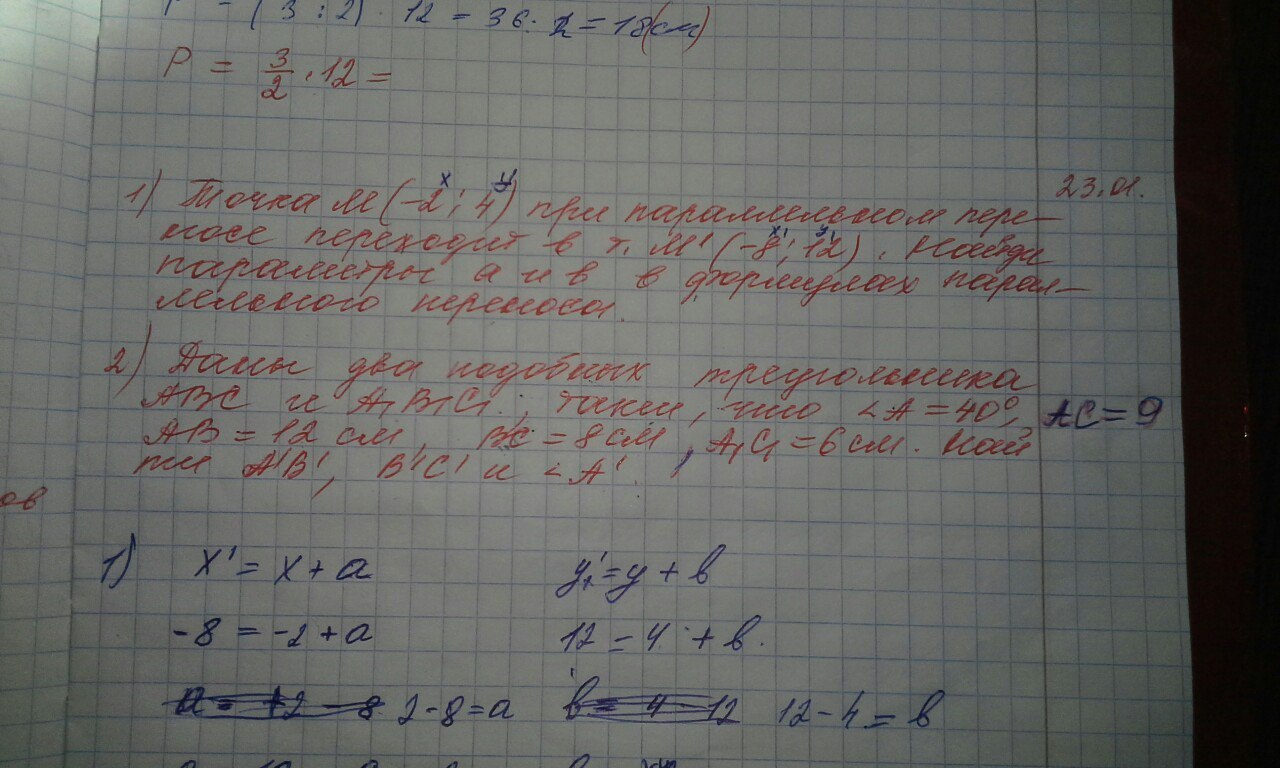 (3 : 2) · 12 = 36 : 2 = 18(см)
P = 3/2 · 12 =
23.01.
x y
1) Точка М (-2; 4) при параллельном пере-
x' y'
носе переходит в т. М' (-8; 12). Найди
параметры а и в в формулах парал-
лельного переноса.
2) Даны два подобных треугольника
АВС и А₁В₁С₁, такие, что ∠А = 40°, АС = 9
АВ = 12 см, ВС = 8 см, А₁С₁ = 6 см. Най
ти А'В', В'С' и ∠А'.
ов
1) x' = x + a y' = y + в
-8 = -2 + a 12 = 4 + в.
2 - 8 = a 12 - 4 = в